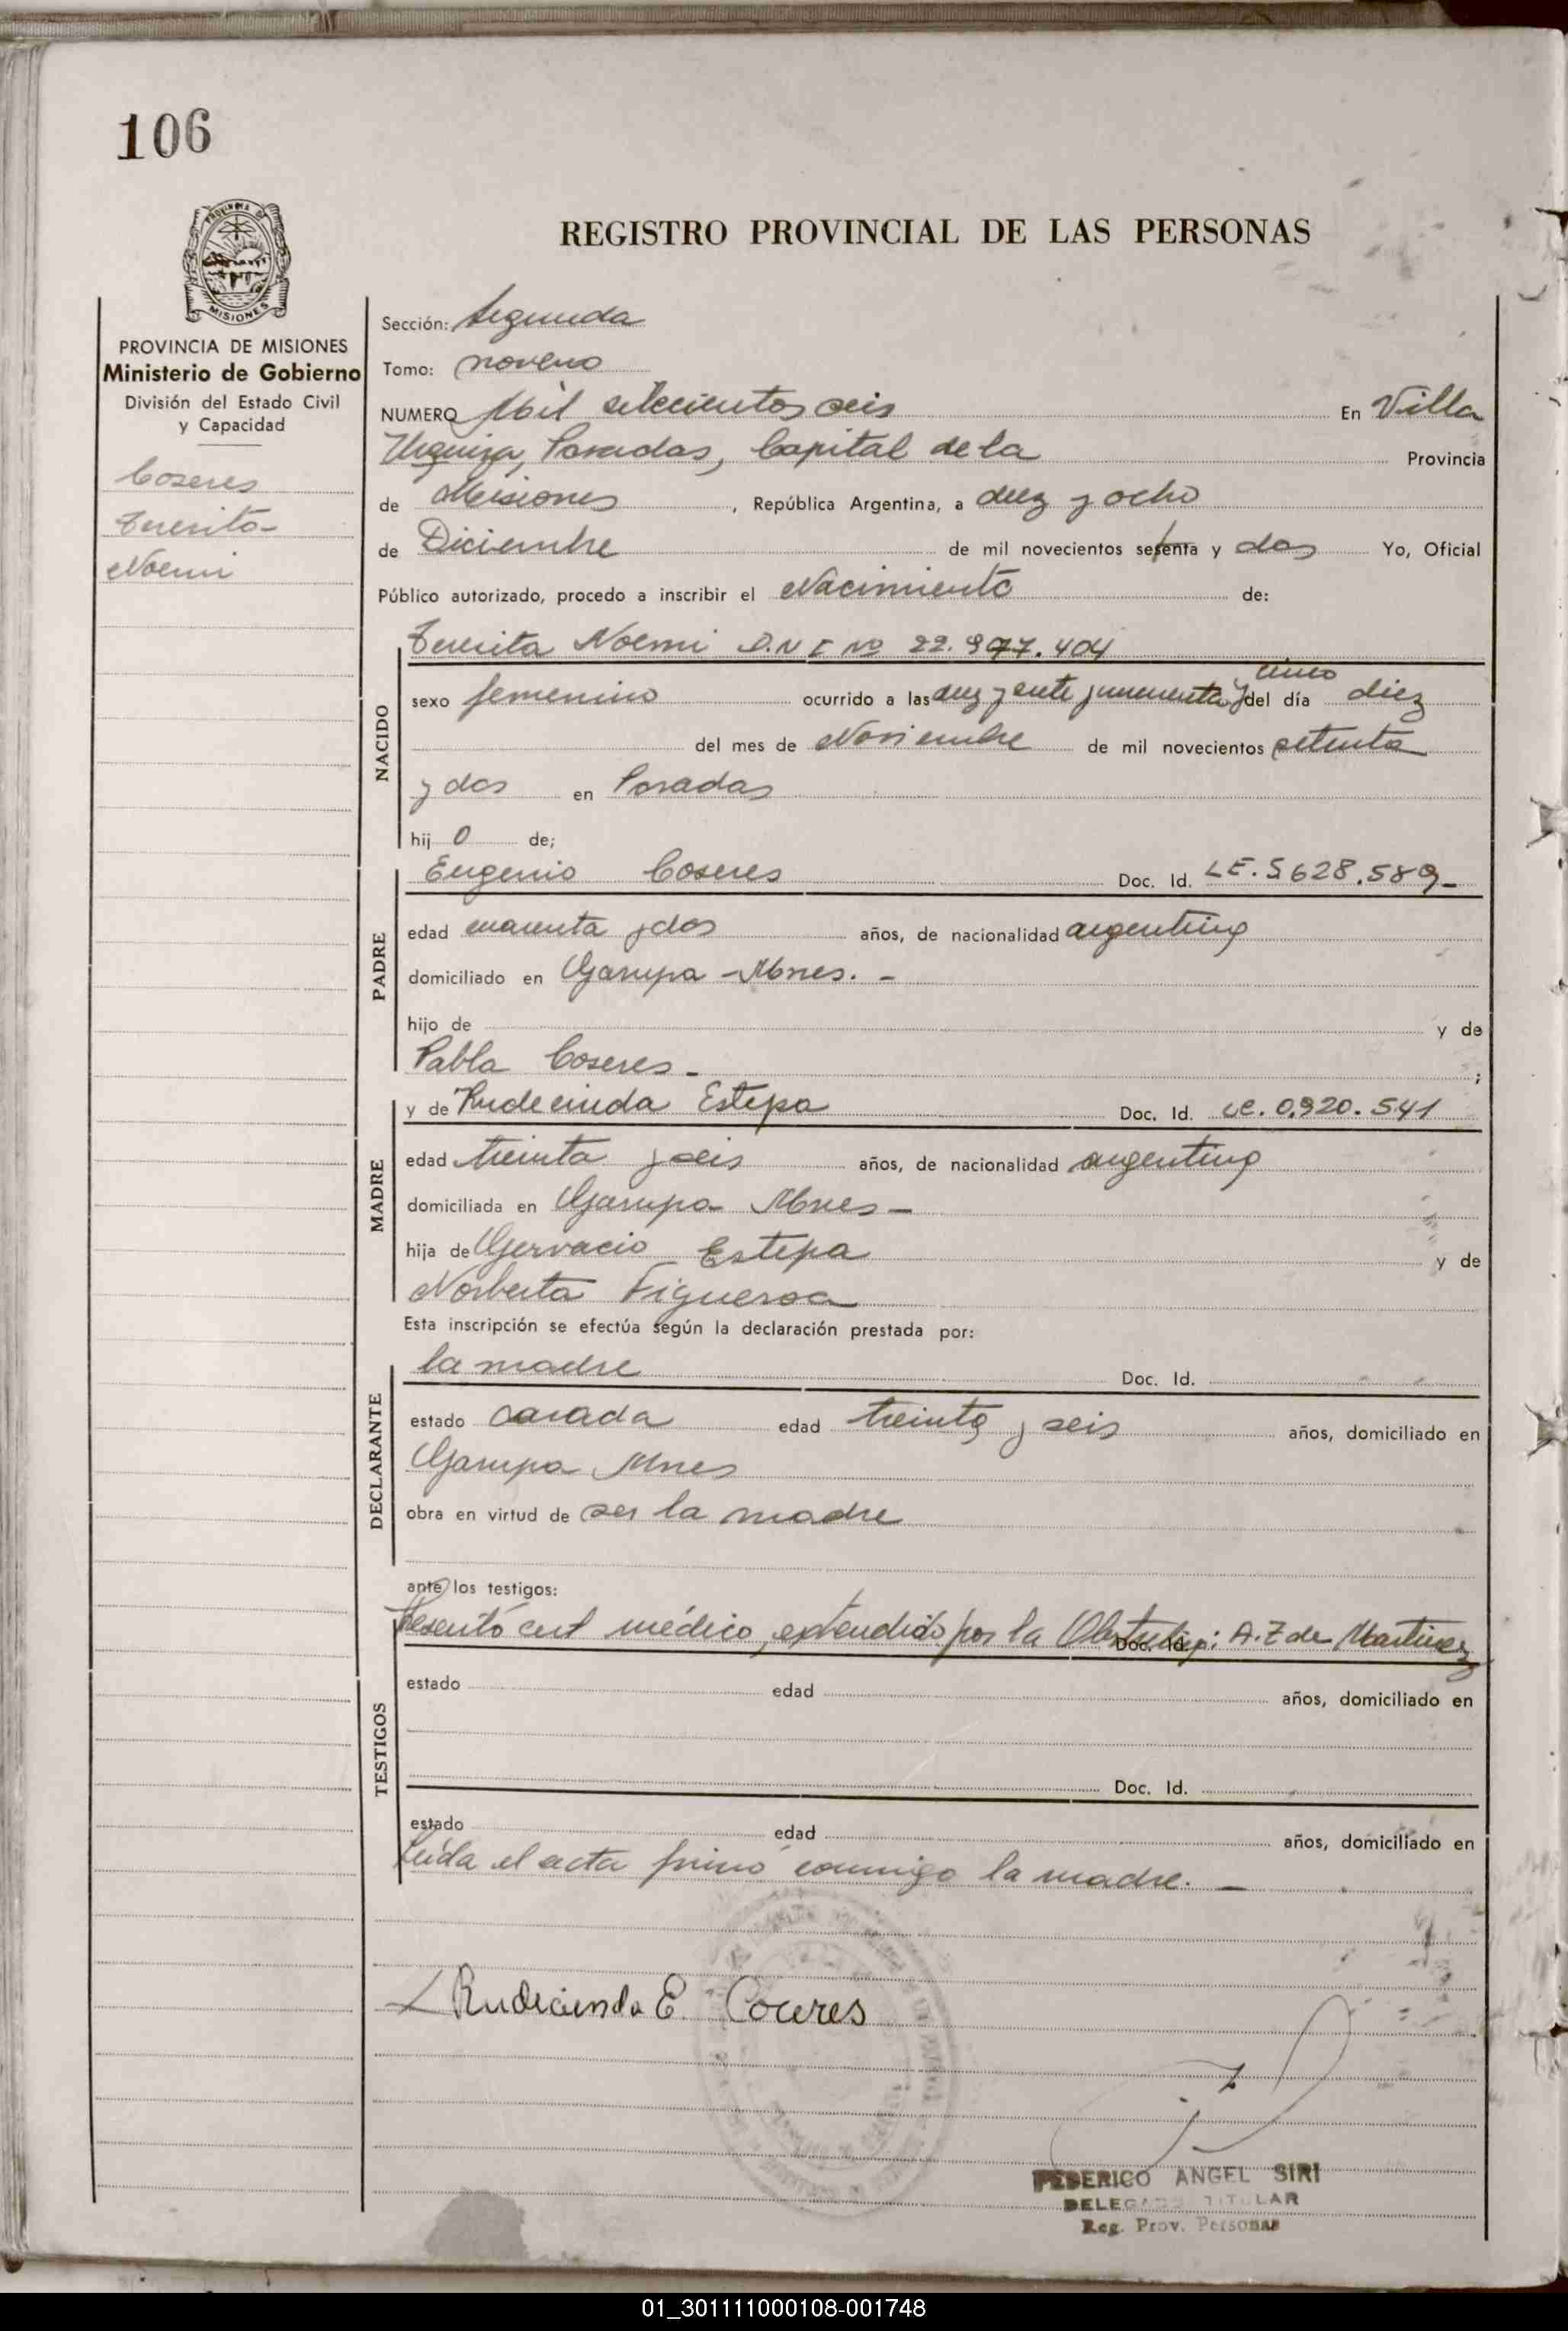 106
REGISTRO PROVINCIAL DE LAS PERSONAS
PROVINCIA DE
MISIONES
PROVINCIA DE MISIONES
Ministerio de Gobierno
División del Estado Civil
y Capacidad
Coseres
Teresita
Noemi
Sección: Segunda
Tomo: noveno
NUMERO Mil setecientos seis En Villa
Urquiza, Posadas, Capital de la Provincia
de Misiones, República Argentina, a diez y ocho
de Diciembre de mil novecientos setenta y dos Yo, Oficial
Público autorizado, procedo a inscribir el Nacimiento de:
NACIDO
Teresita Noemi D.N I No 22.977.404
cinco
sexo femenino ocurrido a las diez y siete y cuarenta y del día diez
del mes de Noviembre de mil novecientos setenta
y dos en Posadas
hij o de;
PADRE
Eugenio Coseres Doc. Id. LE. 5628.589-
edad cuarenta y dos años, de nacionalidad argentino
domiciliado en Garupa - Mnes. -
hijo de y de
Pabla Coseres - ;
MADRE
y de Rudecinda Estepa Doc. Id. LC. 0.920.541
edad treinta y seis años, de nacionalidad argentina
domiciliada en Garupa Mnes -
hija de Gervacio Estepa y de
Norberta Figueroa
Esta inscripción se efectúa según la declaración prestada por:
DECLARANTE
la madre Doc. Id.
estado casada edad treinta y seis años, domiciliado en
Garupa Mnes
obra en virtud de ser la madre
ante los testigos:
TESTIGOS
Presentó cert médico, extendido por la Obstetriz: A.Z de Martinez Doc. Id.
estado edad años, domiciliado en
Doc. Id.
estado edad años, domiciliado en
Leída el acta firmó conmigo la madre. -
Rudecinda E. Coceres
FEDERICO ANGEL SIRI
DELEGADO TITULAR
Reg. Prov. Personas
01_301111000108-001748